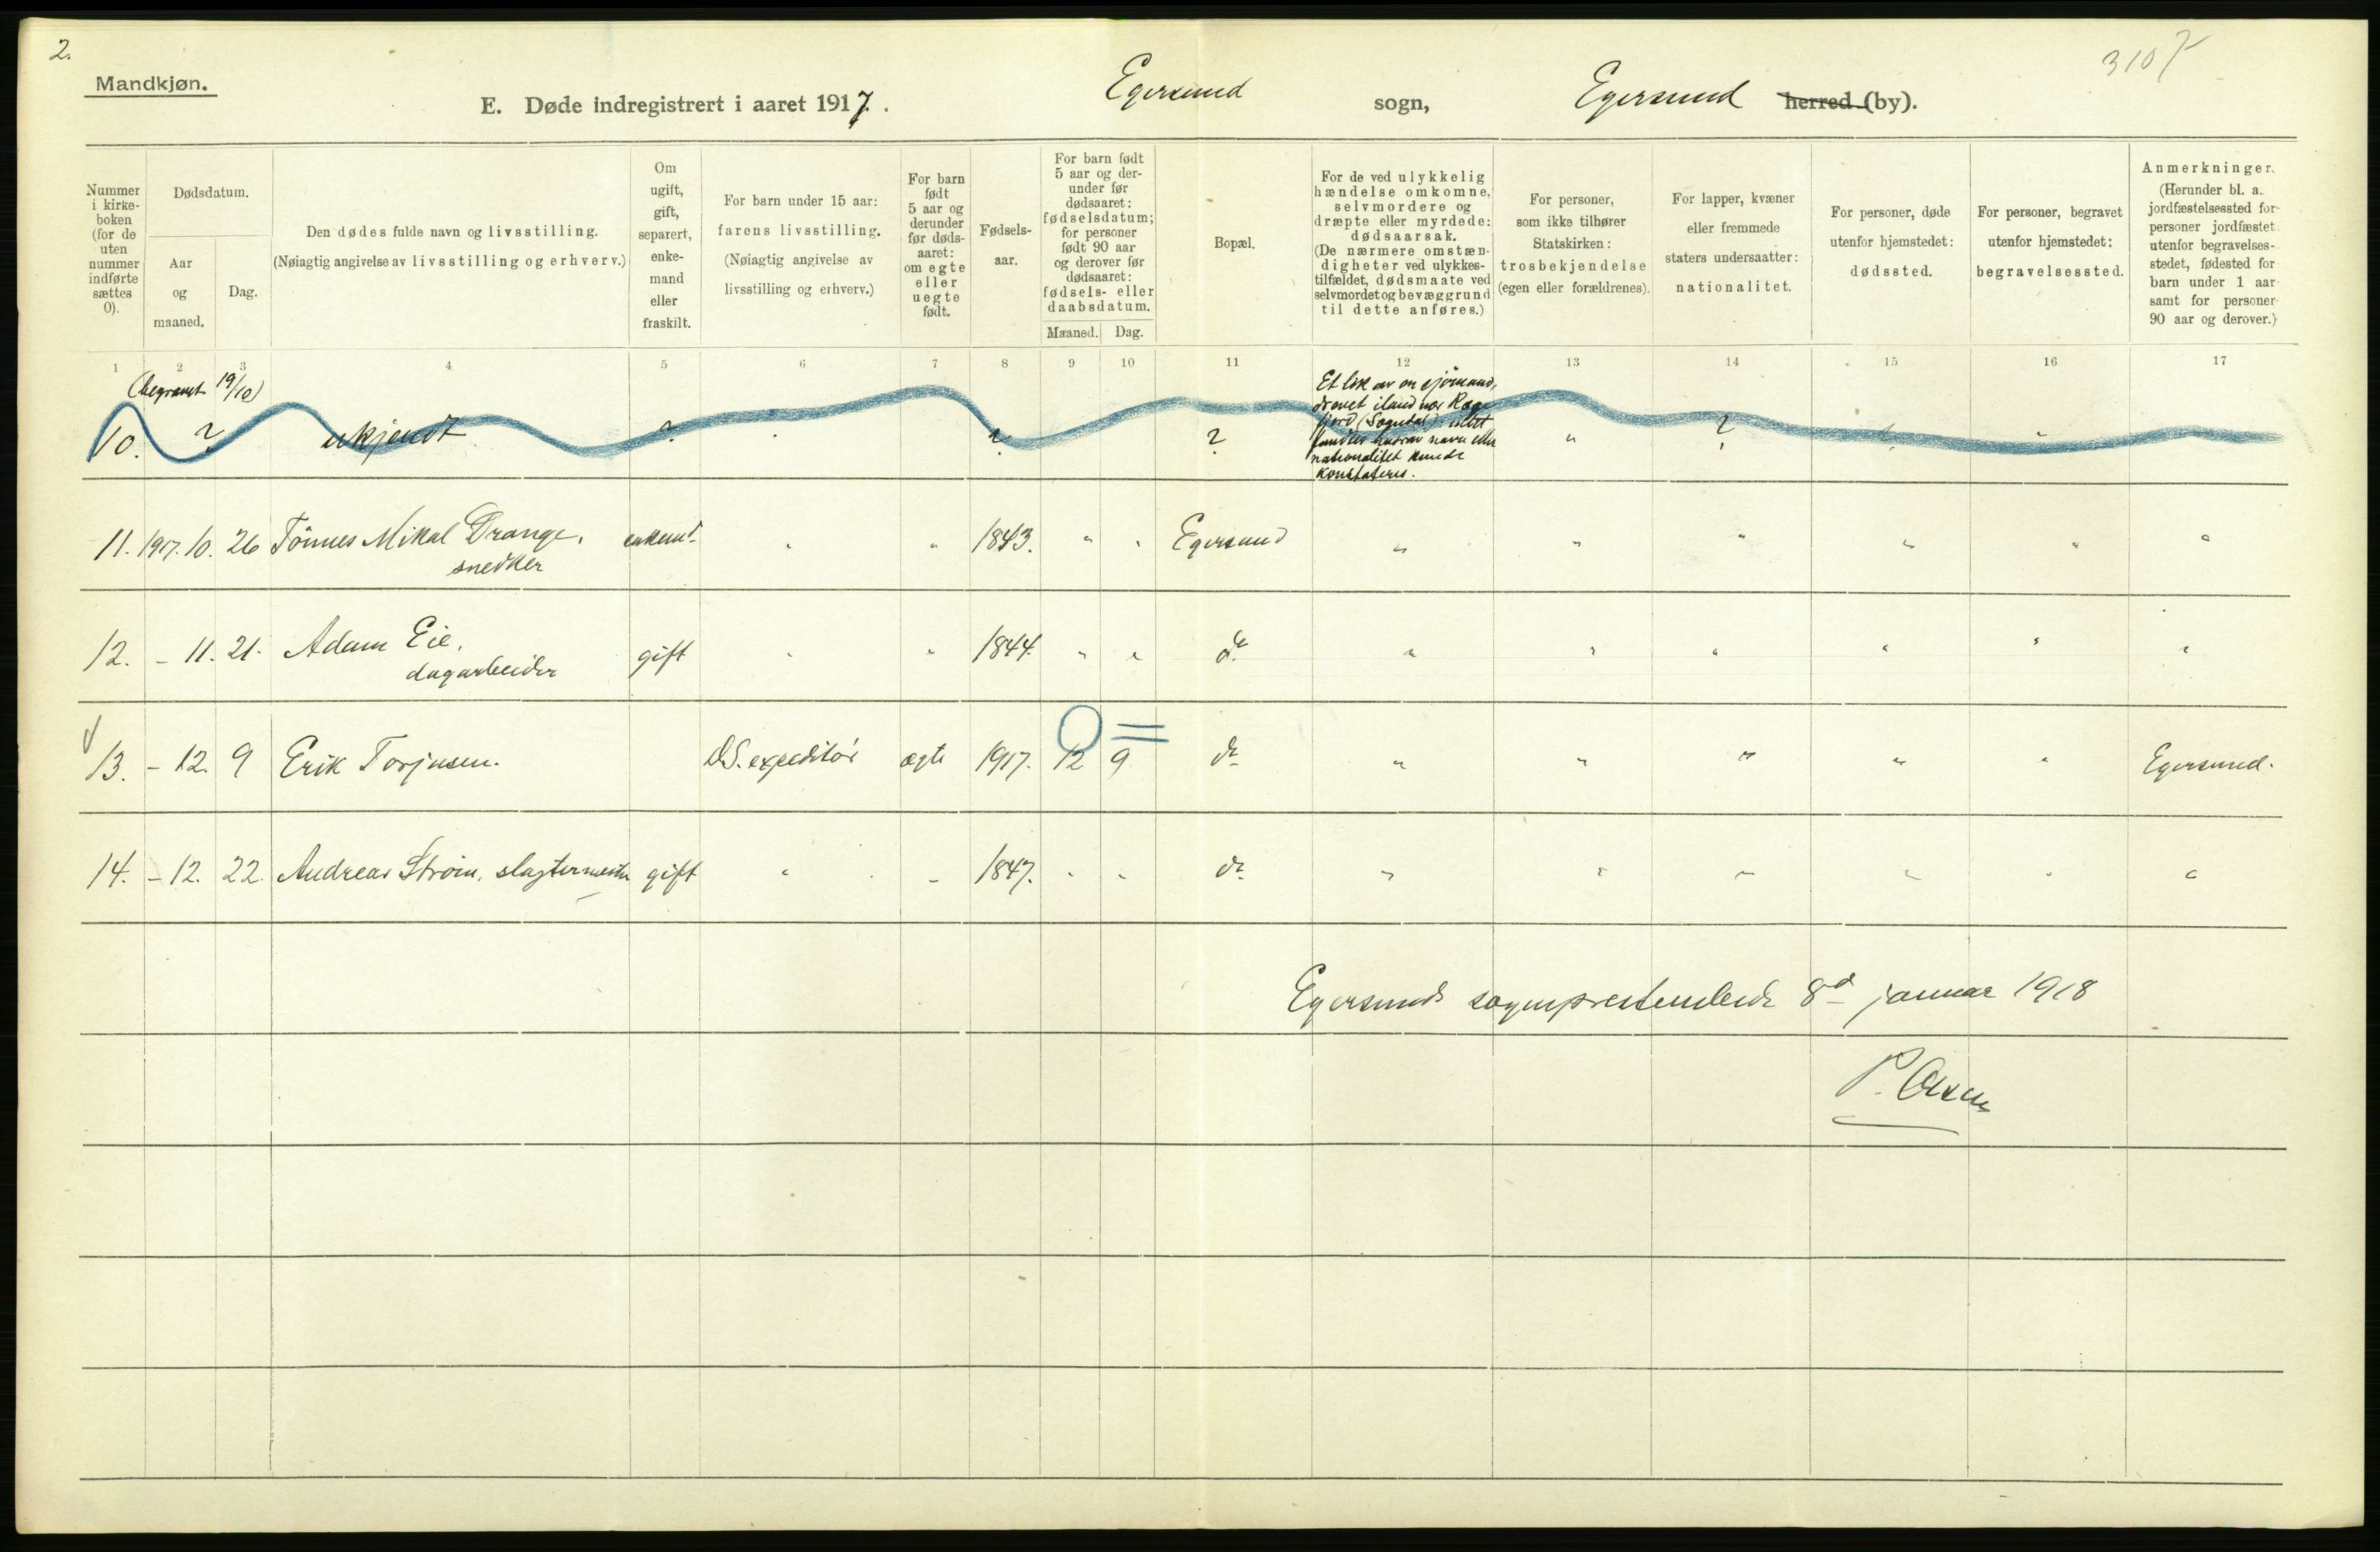 2.
3107
Mandkjøn.
E. Døde indregistrert i aaret 1917. Egersund sogn, Egersund herred (by).
Nummer i kirke-boken (for de uten nummer indførte sættes 0).
Dødsdatum.
Aar og maaned.
Dag.
Den dødes fulde navn og livsstilling.
(Nøiagtig angivelse av livsstilling og erhverv.)
Om ugift, gift, separert, enke-mand eller fraskilt.
For barn under 15 aar: farens livsstilling. (Nøiagtig angivelse av livsstilling og erhverv.)
For barn født 5 aar og derunder før døds-aaret: om egte eller uegte født.
Fødsels-aar.
For barn født 5 aar og der-under før dødsaaret: fødselsdatum; for personer født 90 aar og derover før dødsaaret: fødsels- eller daabsdatum.
Maaned. Dag.
Bopæl.
For de ved ulykkelig hændelse omkomne, selvmordere og dræpte eller myrdede: dødsaarsak. (De nærmere omstæn-digheter ved ulykkes-tilfældet, dødsmaate ved selvmordet og bevæggrund til dette anføres.)
For personer, som ikke tilhører Statskirken: trosbekjendelse (egen eller forældrenes).
For lapper, kvæner eller fremmede staters undersaatter: nationalitet.
For personer, døde utenfor hjemstedet: dødssted.
For personer, begravet utenfor hjemstedet: begravelsessted.
Anmerkninger. (Herunder bl. a. jordfæstelsessted for personer jordfæstet utenfor begravelses-stedet, fødested for barn under 1 aar samt for personer 90 aar og derover.)
1 2 3 4 5 6 7 8 9 10 11 12 13 14 15 16 17
(begravet 19/10)
10. ? ukjendt ? " ? ? " ? " "
Et lik av en sjömand,
drevet iland nær Ræge
fjord (Sogndal) intet
hvorav navn eller
nationalitet kunde
konstateres.
11. 1917. 10. 26 Tönnes Mikal Drange, enkem. " " 1843. " " Egersund " " " " " "
snedker
12. – 11. 21. Adam Eie, gift " " 1844. " " do " " " " " "
dagarbeider
13. – 12. 9 Erik Torjusen. D.S. expeditör egte 1917. 12 9 do " " " " " Egersund.
14. – 12. 22. Andreas Ström, slagtermester gift " " 1847. " " do " " " " " "
Egersunds sogneprestembede 8d januar 1918
P. Olsen